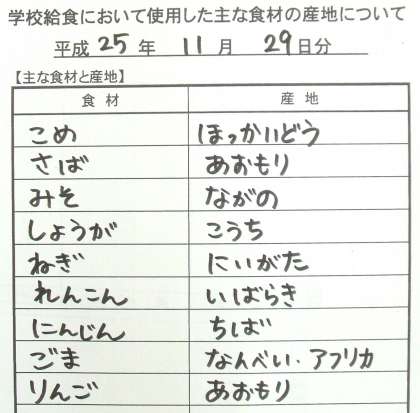 学校給食において使用した主な食材の産地について
平成 25 年 11 月 29 日分
【主な食材と産地】
食材 産地
こめ ほっかいどう
さば あおもり
みそ ながの
しょうが こうち
ねぎ にいがた
れんこん いばらき
にんじん ちば
ごま なんべい・アフリカ
りんご あおもり